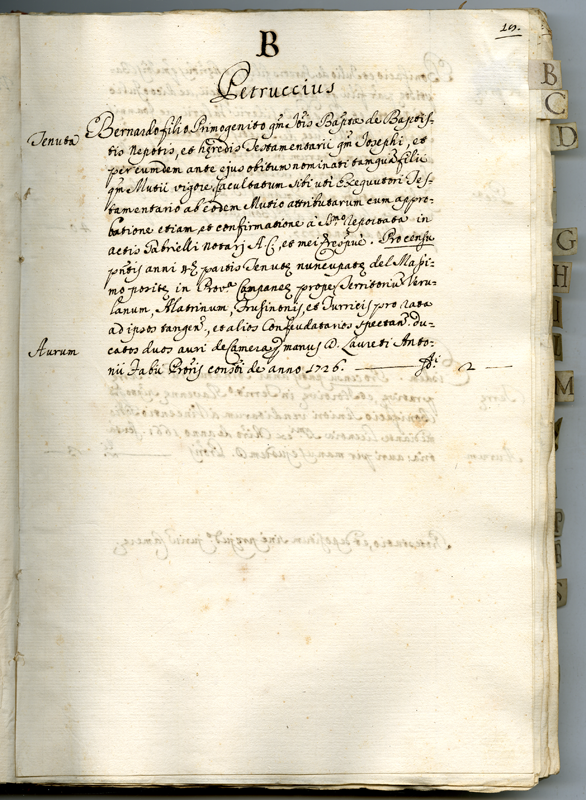 19.
B
Petruccius
Tenuta
Bernardo filio Primogenito qm Jois Baptæ de Baptis-
tis Nepotis, et hæredis Testamentarii qm Josephi, et
per eundem ante ejus obitum nominati tamquam filii
qm Mutii vigore facultatum sibi uti Exequutori Tes-
tamentario ab eodem Mutio attributarum cum appro-
batione etiam, et confirmatione à reportata in
actis Gabrielli notarij A.C., et mei respue. Pro censu
pntis anni partis Tenutæ nuncupatæ del Massi-
mo positæ in Prov.a Campaneæ prope Territoriu Veru-
lanum, Alatrinum, Frusinonis, et Turricis pro rata
ad ipsos tangen, et alios Confeudatarios spectan. du-
Aurum
catos duos auri de Camera manus D. Laureti Anto-
nii Fabii Proris constti de anno 1726. — 2 —
B
C
D
G
H
I
L
M
P
S